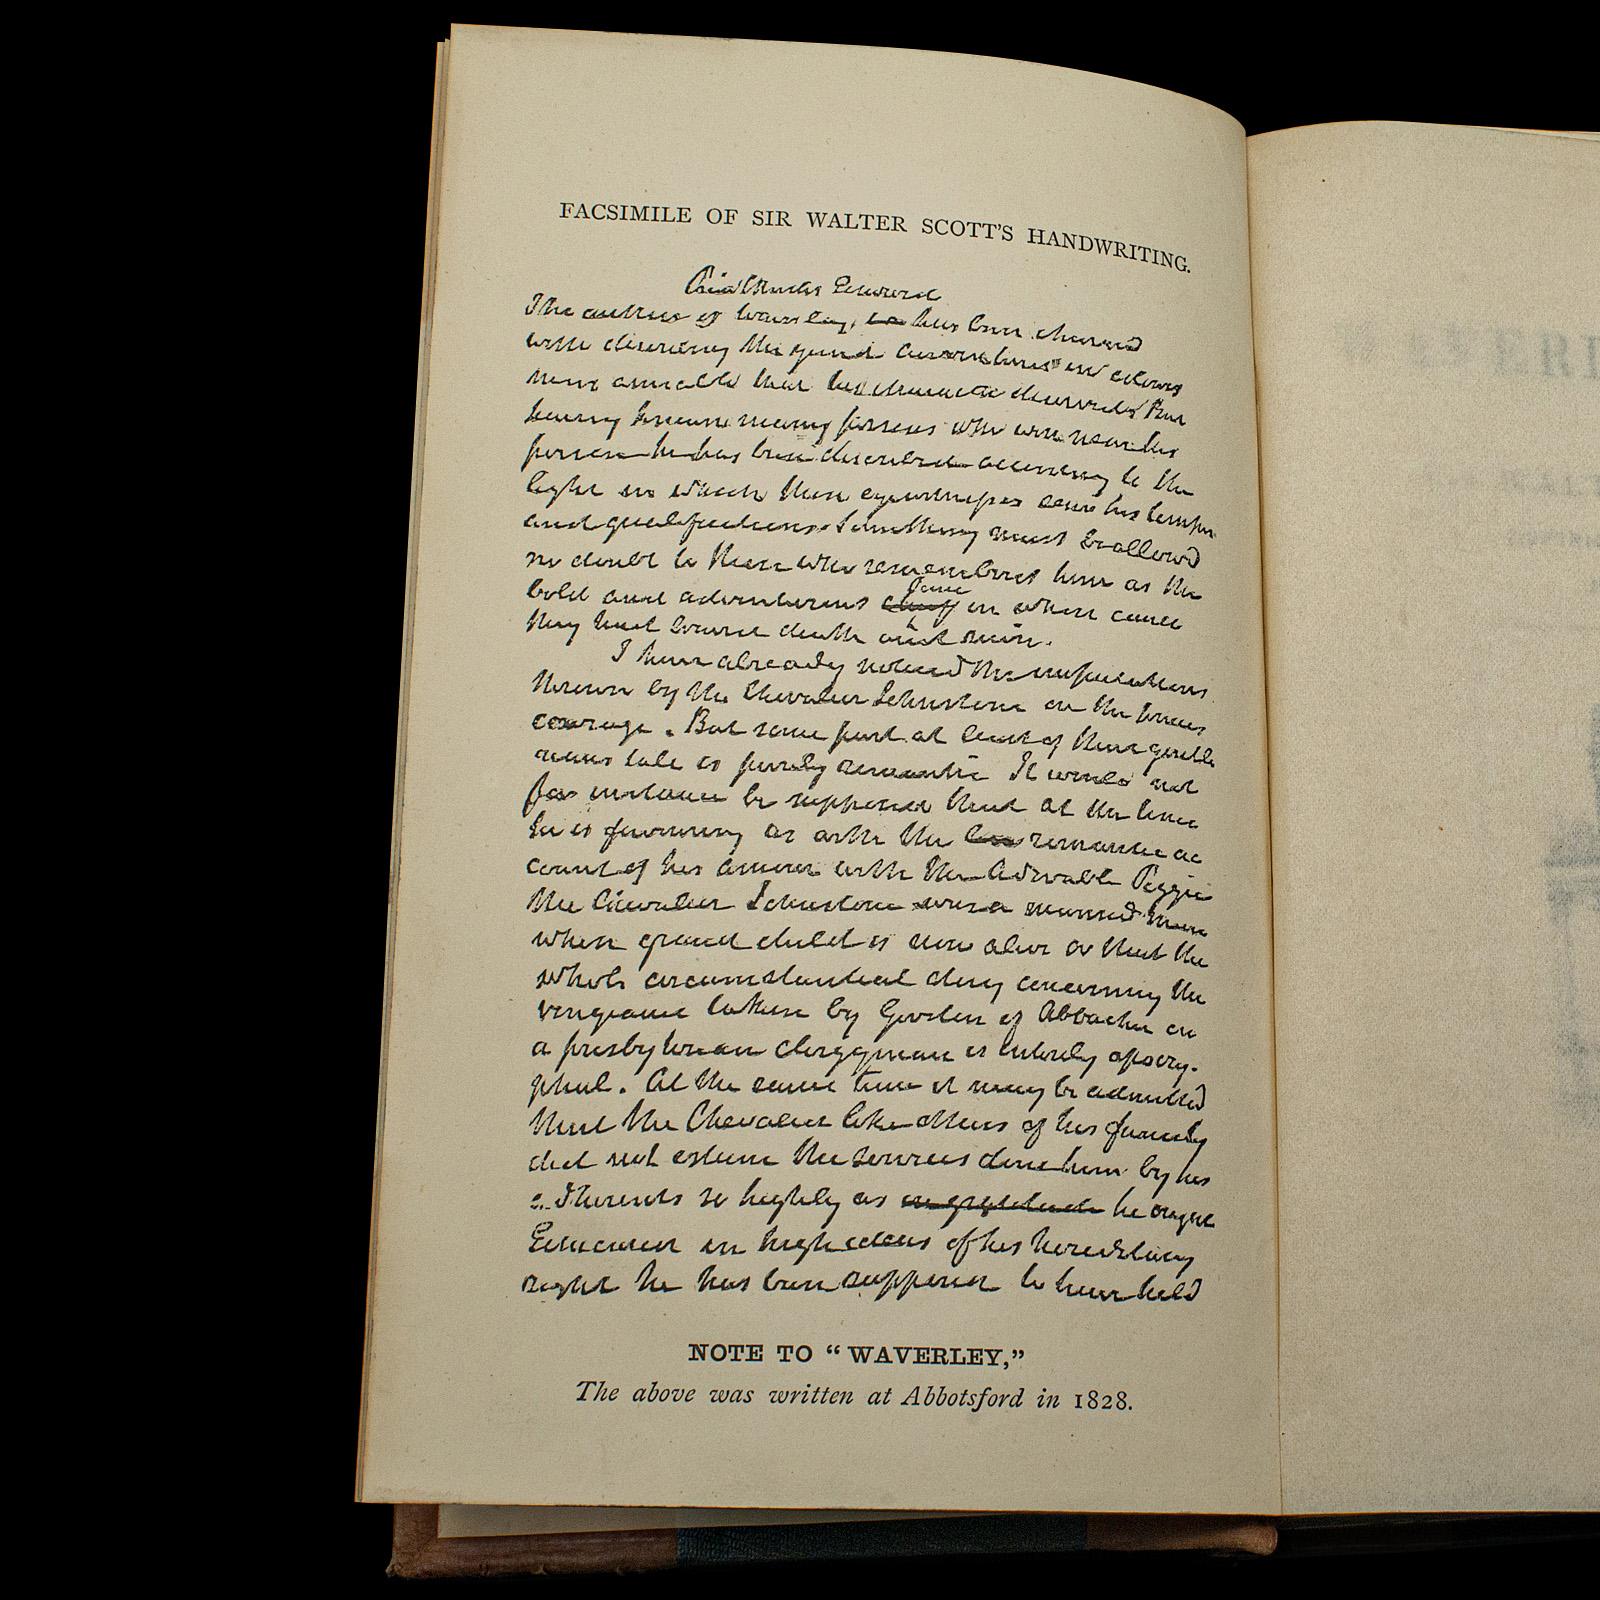 FACSIMILE OF SIR WALTER SCOTT'S HANDWRITING.
Prince Charles Edward
The author of Waverley, is has been charged
with drawing the young adventurer in colours
more amiable than his character deserved But
having known many persons who were near his
person he has been described according to the
light in which those eyewitnesses saw his temper
and qualifications. Something must be allowed
no doubt to those who remembered him as the
Prince
bold and adventurous chief in whose cause
they had braved death and ruin.
I have already noticed the imputations
thrown by the Chevalier Johnstone on the princes
courage. But some part at least of that gentle
mans tale is purely romantic It would not
for instance be supposed that at the time
he is favouring us with the romantic ac
count of his amour with the adorable Peggie
the Chevalier Johnstone was a married man
whose grand child is now alive or that the
whole circumstantial story concerning the
vengeance taken by Gordon of Abbachie on
a presbyterian clergyman is entirely apocry-
phal. At the same time it may be admitted
that the Chevalier like others of his family
did not esteem the services done him by his
adherents so highly as he ought
Educated in high ideas of his hereditary
right he has been supposed to have held
NOTE TO “WAVERLEY,”
The above was written at Abbotsford in 1828.